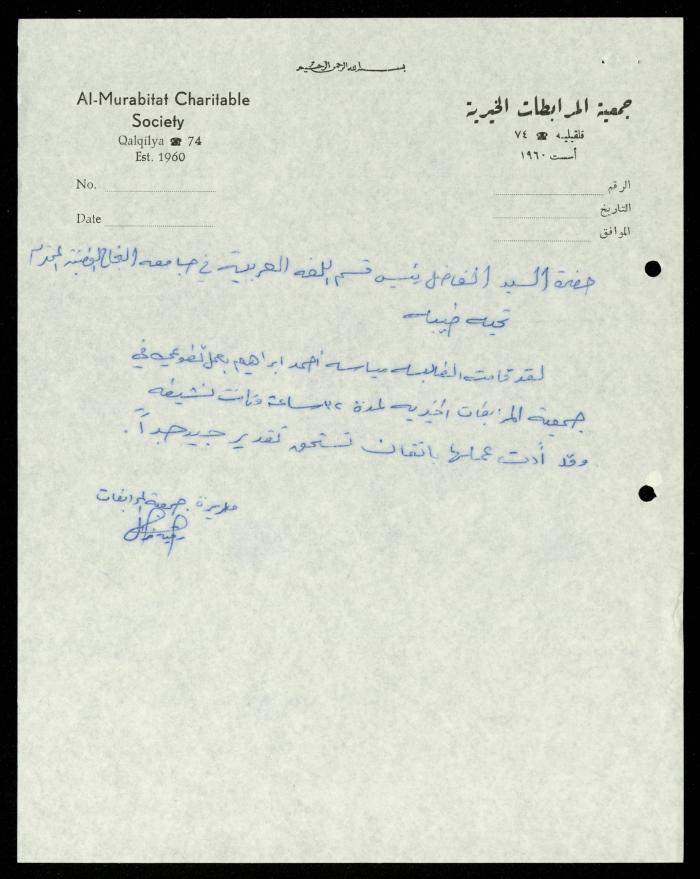 بسم الله الرحمن الرحيم
Al-Murabitat Charitable
Society
Qalqilya ☎ 74
Est. 1960
No.
Date
جمعية المرابطات الخيرية
قلقيليه ☎ ٧٤
أسست ١٩٦٠
الرقم
التاريخ
الموافق
حضرة السيد الفاضل رئيس قسم اللغه العربية في جامعه النجاح الوطنية المحترم
تحيه طيبه
لقد قامت الطالبه مياسه احمد ابراهيم بعمل تطوعي في
جمعية المرابطات الخيريه لمدة ٣٢ ساعة وكانت نشيطه
وقد أدت عملها باتقان تستحق تقدير جيد جداً.
مديرة جمعية المرابطات